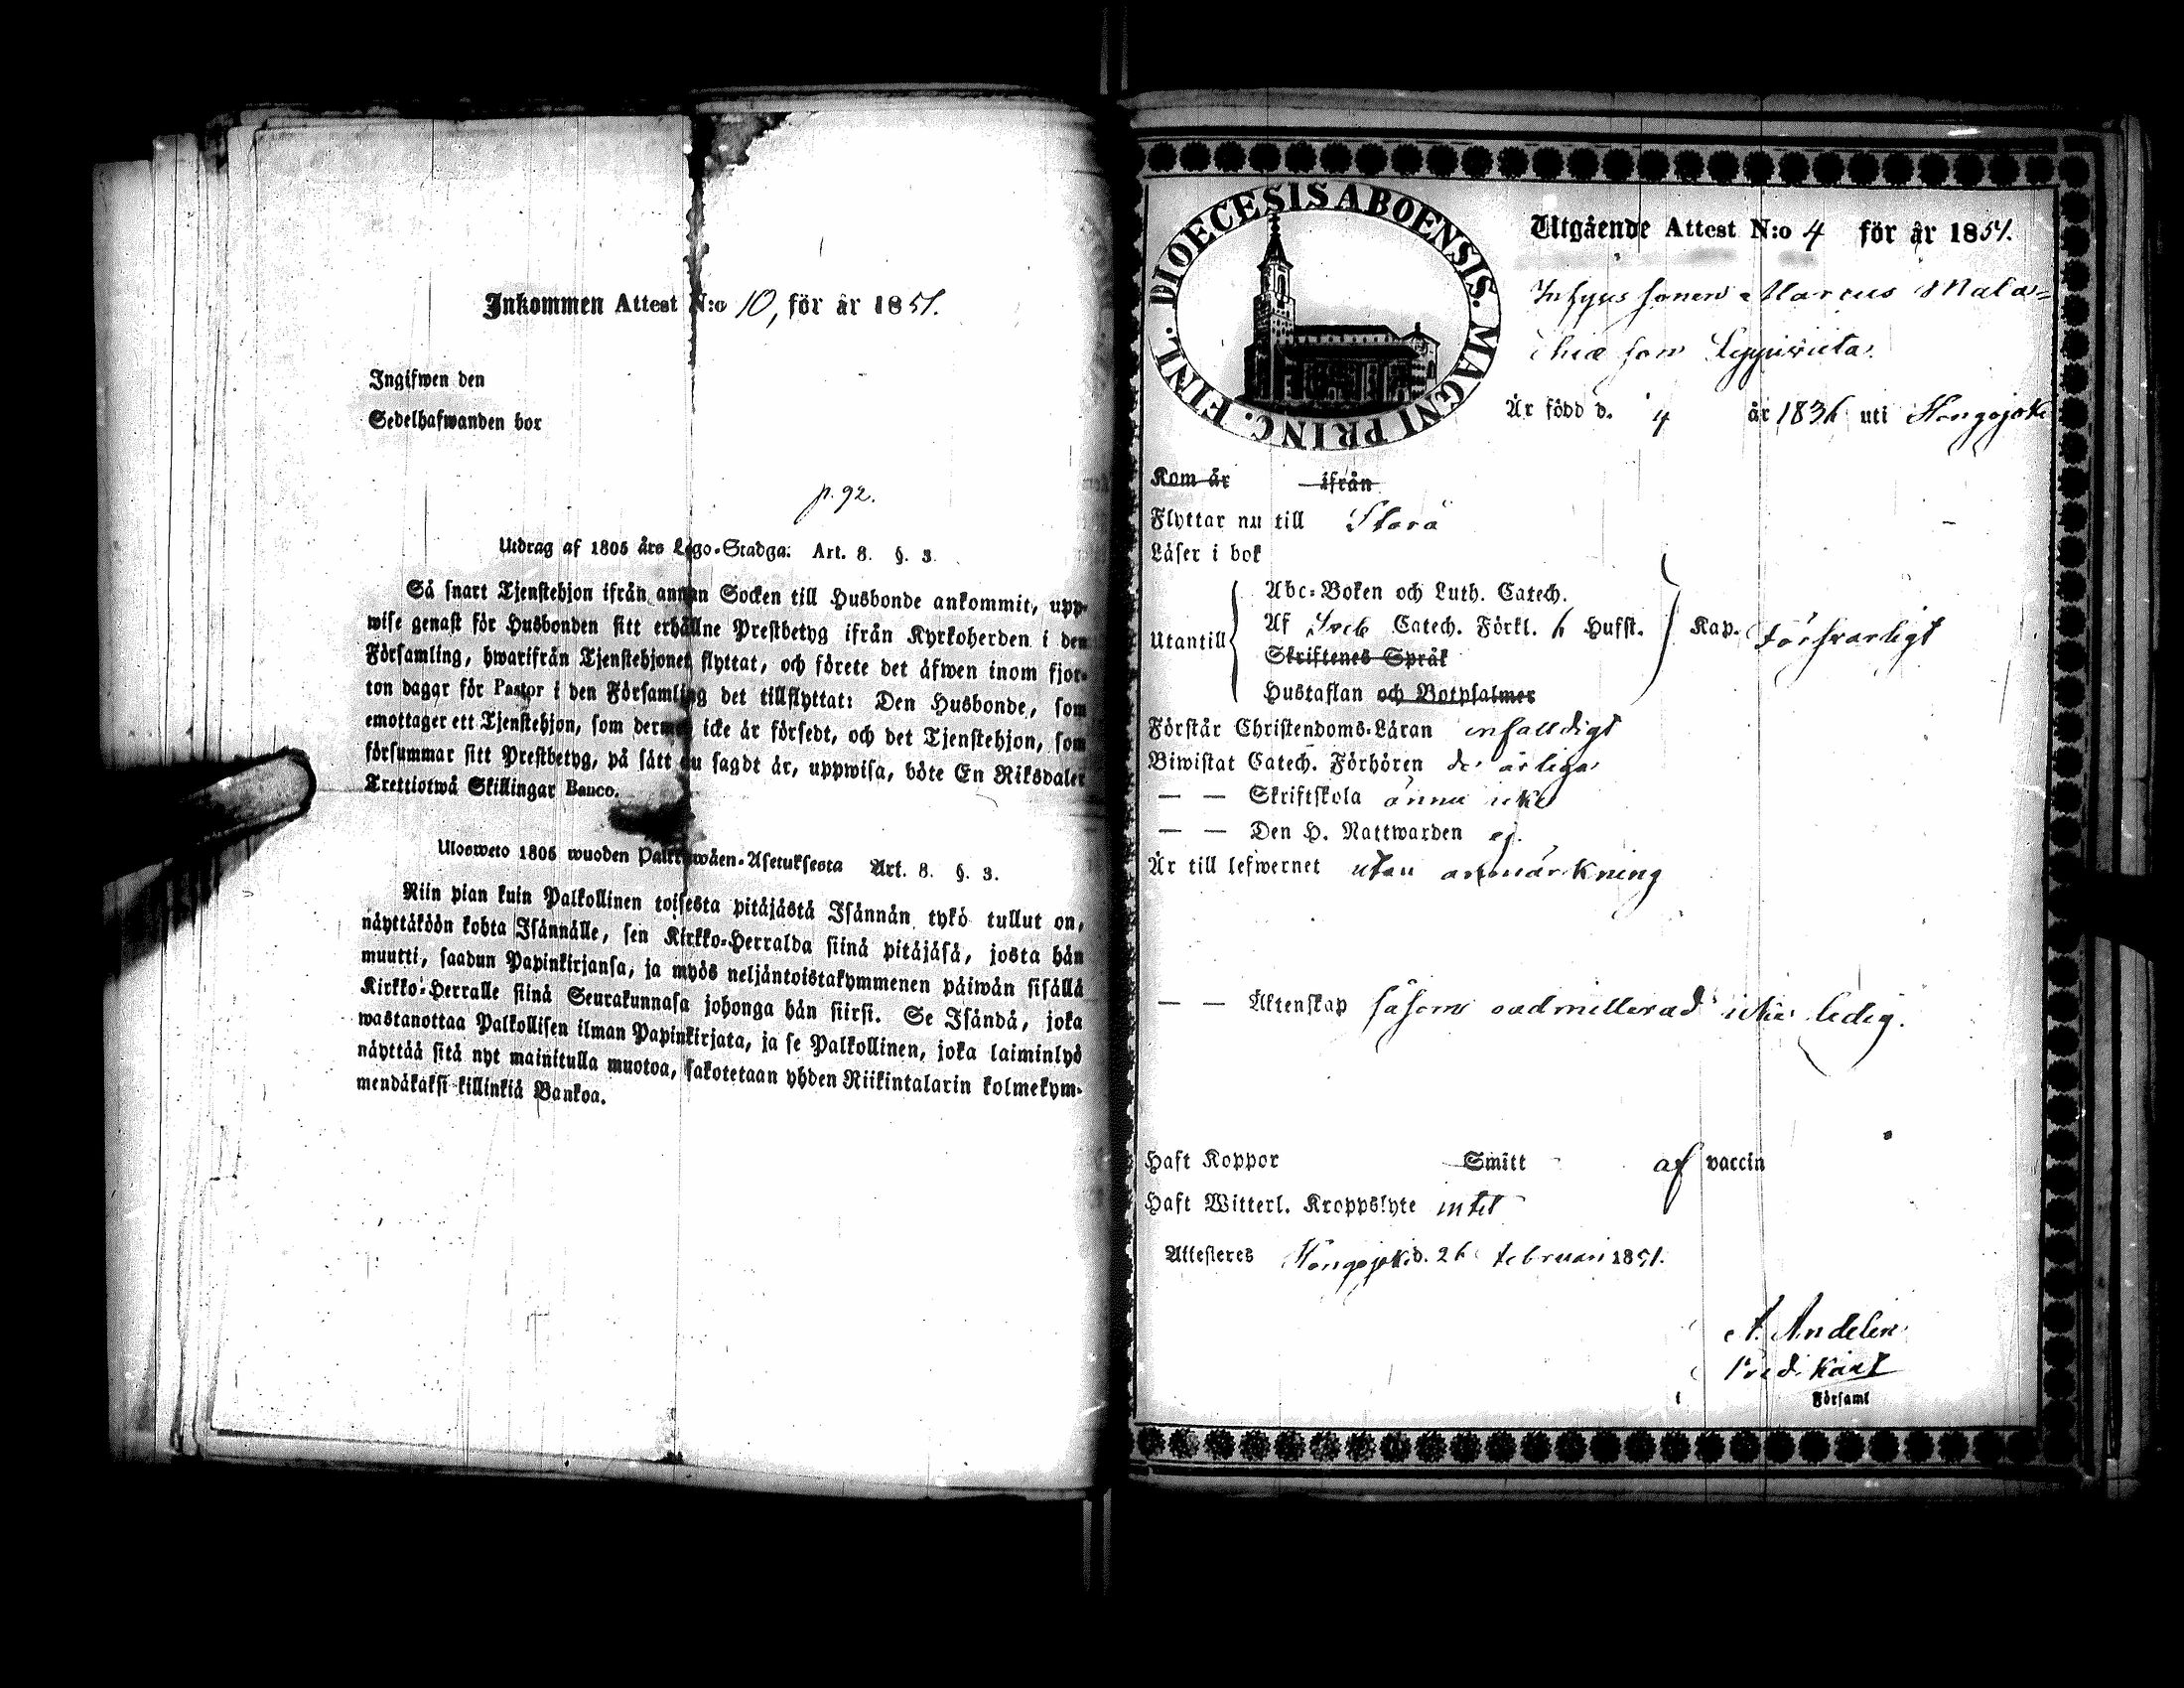 Inkommen Attest N:o 10, för år 1851.
Ingifwen den
Sedelhafwanden bor
p. 92.
Utdrag af 1805 års Lego-Stadga: Art. 8. §. 3.
Så snart Tjenstehjon ifrån annan Socken till Husbonde ankommit, upp-
wise genast för Husbonden sitt erhållne Prestbetyg ifrån Kyrkoherden i den
Församling, hwarifrån Tjenstehjonet flyttat, och förete det äfwen inom fjor-
ton dagar för Pastor i den Församling det tillflyttat: Den Husbonde, som
emottager ett Tjenstehjon, som dermed icke är försedt, och det Tjenstehjon, som
försummar sitt Prestbetyg, på sätt nu sagdt är, uppwisa, böte En Riksdaler
Trettiotwå Skillingar Banco.
Ulosweto 1805 wuoden Palkkawäen-Asetuksesta Art. 8. §. 3.
Niin pian kuin Palkollinen toisesta pitäjästä Isännän tykö tullut on,
näyttäköön kohta Isännälle, sen Kirkko-Herralda siinä pitäjäsä, josta hän
muutti, saadun Papinkirjansa, ja myös neljäntoistakymmenen päiwän sisällä
Kirkko-Herralle siinä Seurakunnasa johonga hän siirsi. Se Isändä, joka
wastanottaa Palkollisen ilman Papinkirjata, ja se Palkollinen, joka laiminlyö
näyttää sitä nyt mainitulla muotoa, sakotetaan yhden Riikintalarin kolmekym-
mendäkaksi killinkiä Bankoa.
DIOECESIS ABOENSIS. MAGNI PRINC. FINL.
Utgående Attest N:o 4 för år 1851.
Inhyses sonen Marcus Mala-
chiæ son
Är född d. 4 år 1836 uti Hongojoki
Kom år ifrån
Flyttar nu till Storå
Läser i bok
Abc-Boken och Luth. Catech.
Utantill Af Sveb. Catech. Förkl. 6 Hufst. Kap. Försvarligt
Skriftenes Språk
Hustaflan och Botpsalmer
Förstår Christendoms-Läran enfalldigt
Biwistat Catech. Förhören de årliga
— — Skriftskola ännu icke
— — Den H. Nattwarden ej.
Är till lefwernet utan anmärkning
— — Äktenskap såsom oadmitterad icke ledig.
Haft Koppor Smitt af vaccin
Haft Witterl. Kroppslyte intet
Attesteres Hongojoki d. 26 februari 1851.
A. Andelin
Predikant
i Församl